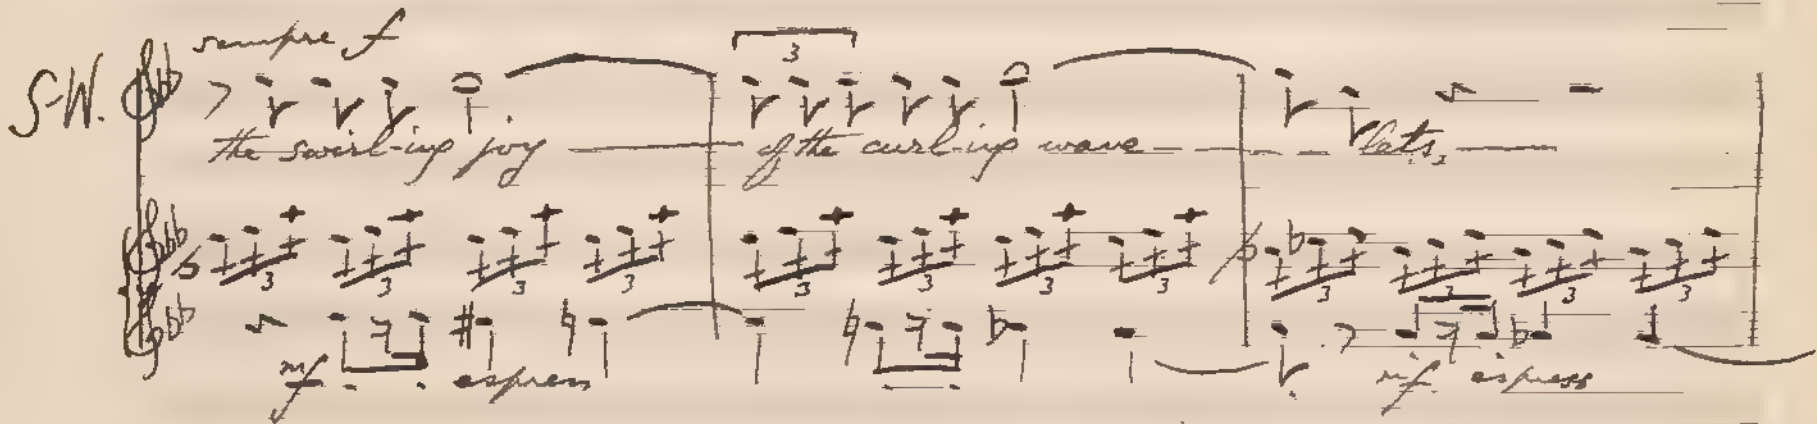 sempre f
S-W.
3
the swirl-ing joy of the curl-ing wave lets,
3 3 3 3 3 3 3 3 3 3 3 3
mf espress mf espress